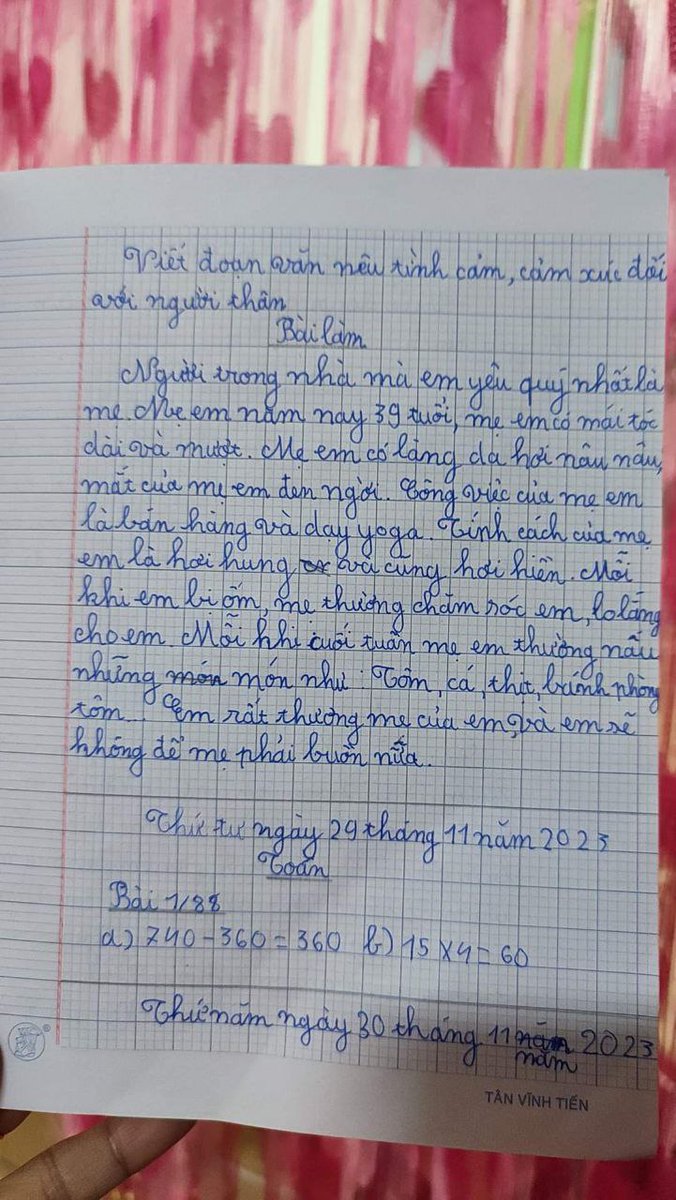 Viết đoạn văn nêu tình cảm, cảm xúc đối
với người thân
Bài làm
Người trong nhà mà em yêu quý nhất là
mẹ. Mẹ em năm nay 39 tuổi, mẹ em có mái tóc
dài và mượt. Mẹ em có làng da hơi nâu nâu,
mắt của mẹ em đen ngời. Công việc của mẹ em
là bán hàng và dạy yoga. Tính cách của mẹ
em là hơi hung và cũng hơi hiền. Mỗi
khi em bị ốm, mẹ thương chăm sóc em, lo lắng
cho em. Mỗi khi cuối tuần mẹ em thường nấu
những món món như: Tôm, cá, thịt, bánh phòng
tôm. Em rất thương mẹ của em, và em sẽ
không để mẹ phải buồn nữa.
Thứ tư ngày 29 tháng 11 năm 2023
Toán
Bài 1/88
a) 740 - 360 = 360 b) 15 x 4 = 60
Thứ năm ngày 30 tháng 11 năm 2023
năm
TÂN VĨNH TIẾN